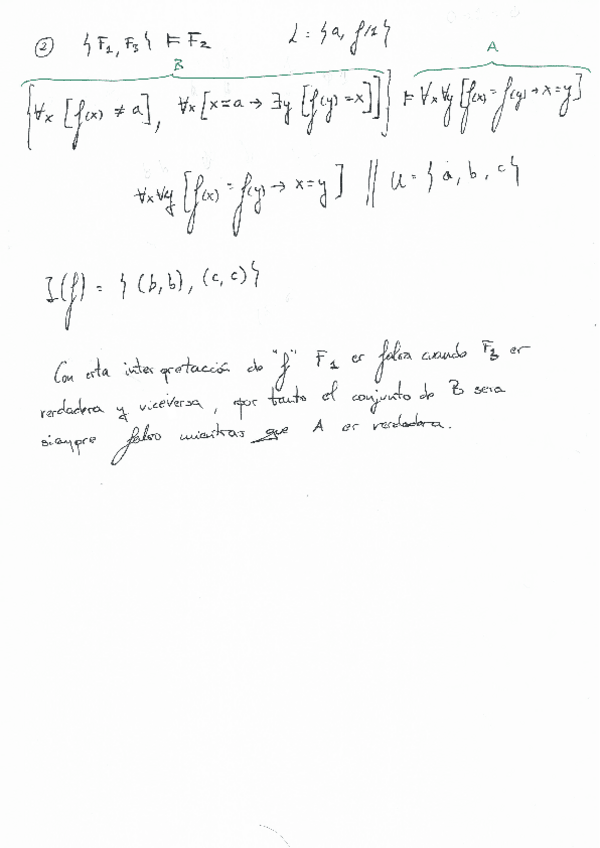 ② { F1, F3 } ⊨ F2 L = { a, f/1 }
B A
{ ∀x [f(x) ≠ a], ∀x [x = a → ∃y [f(y) = x]] } ⊨ ∀x∀y [f(x) = f(y) → x = y]
∀x∀y [f(x) = f(y) → x = y] // U = { a, b, c }
I(f) = { (b, b), (c, c) }
Con esta interpretación de "f" F1 es falsa cuando F3 es
verdadera y viceversa, por tanto el conjunto de B sera
siempre falso mientras que A es verdadera.